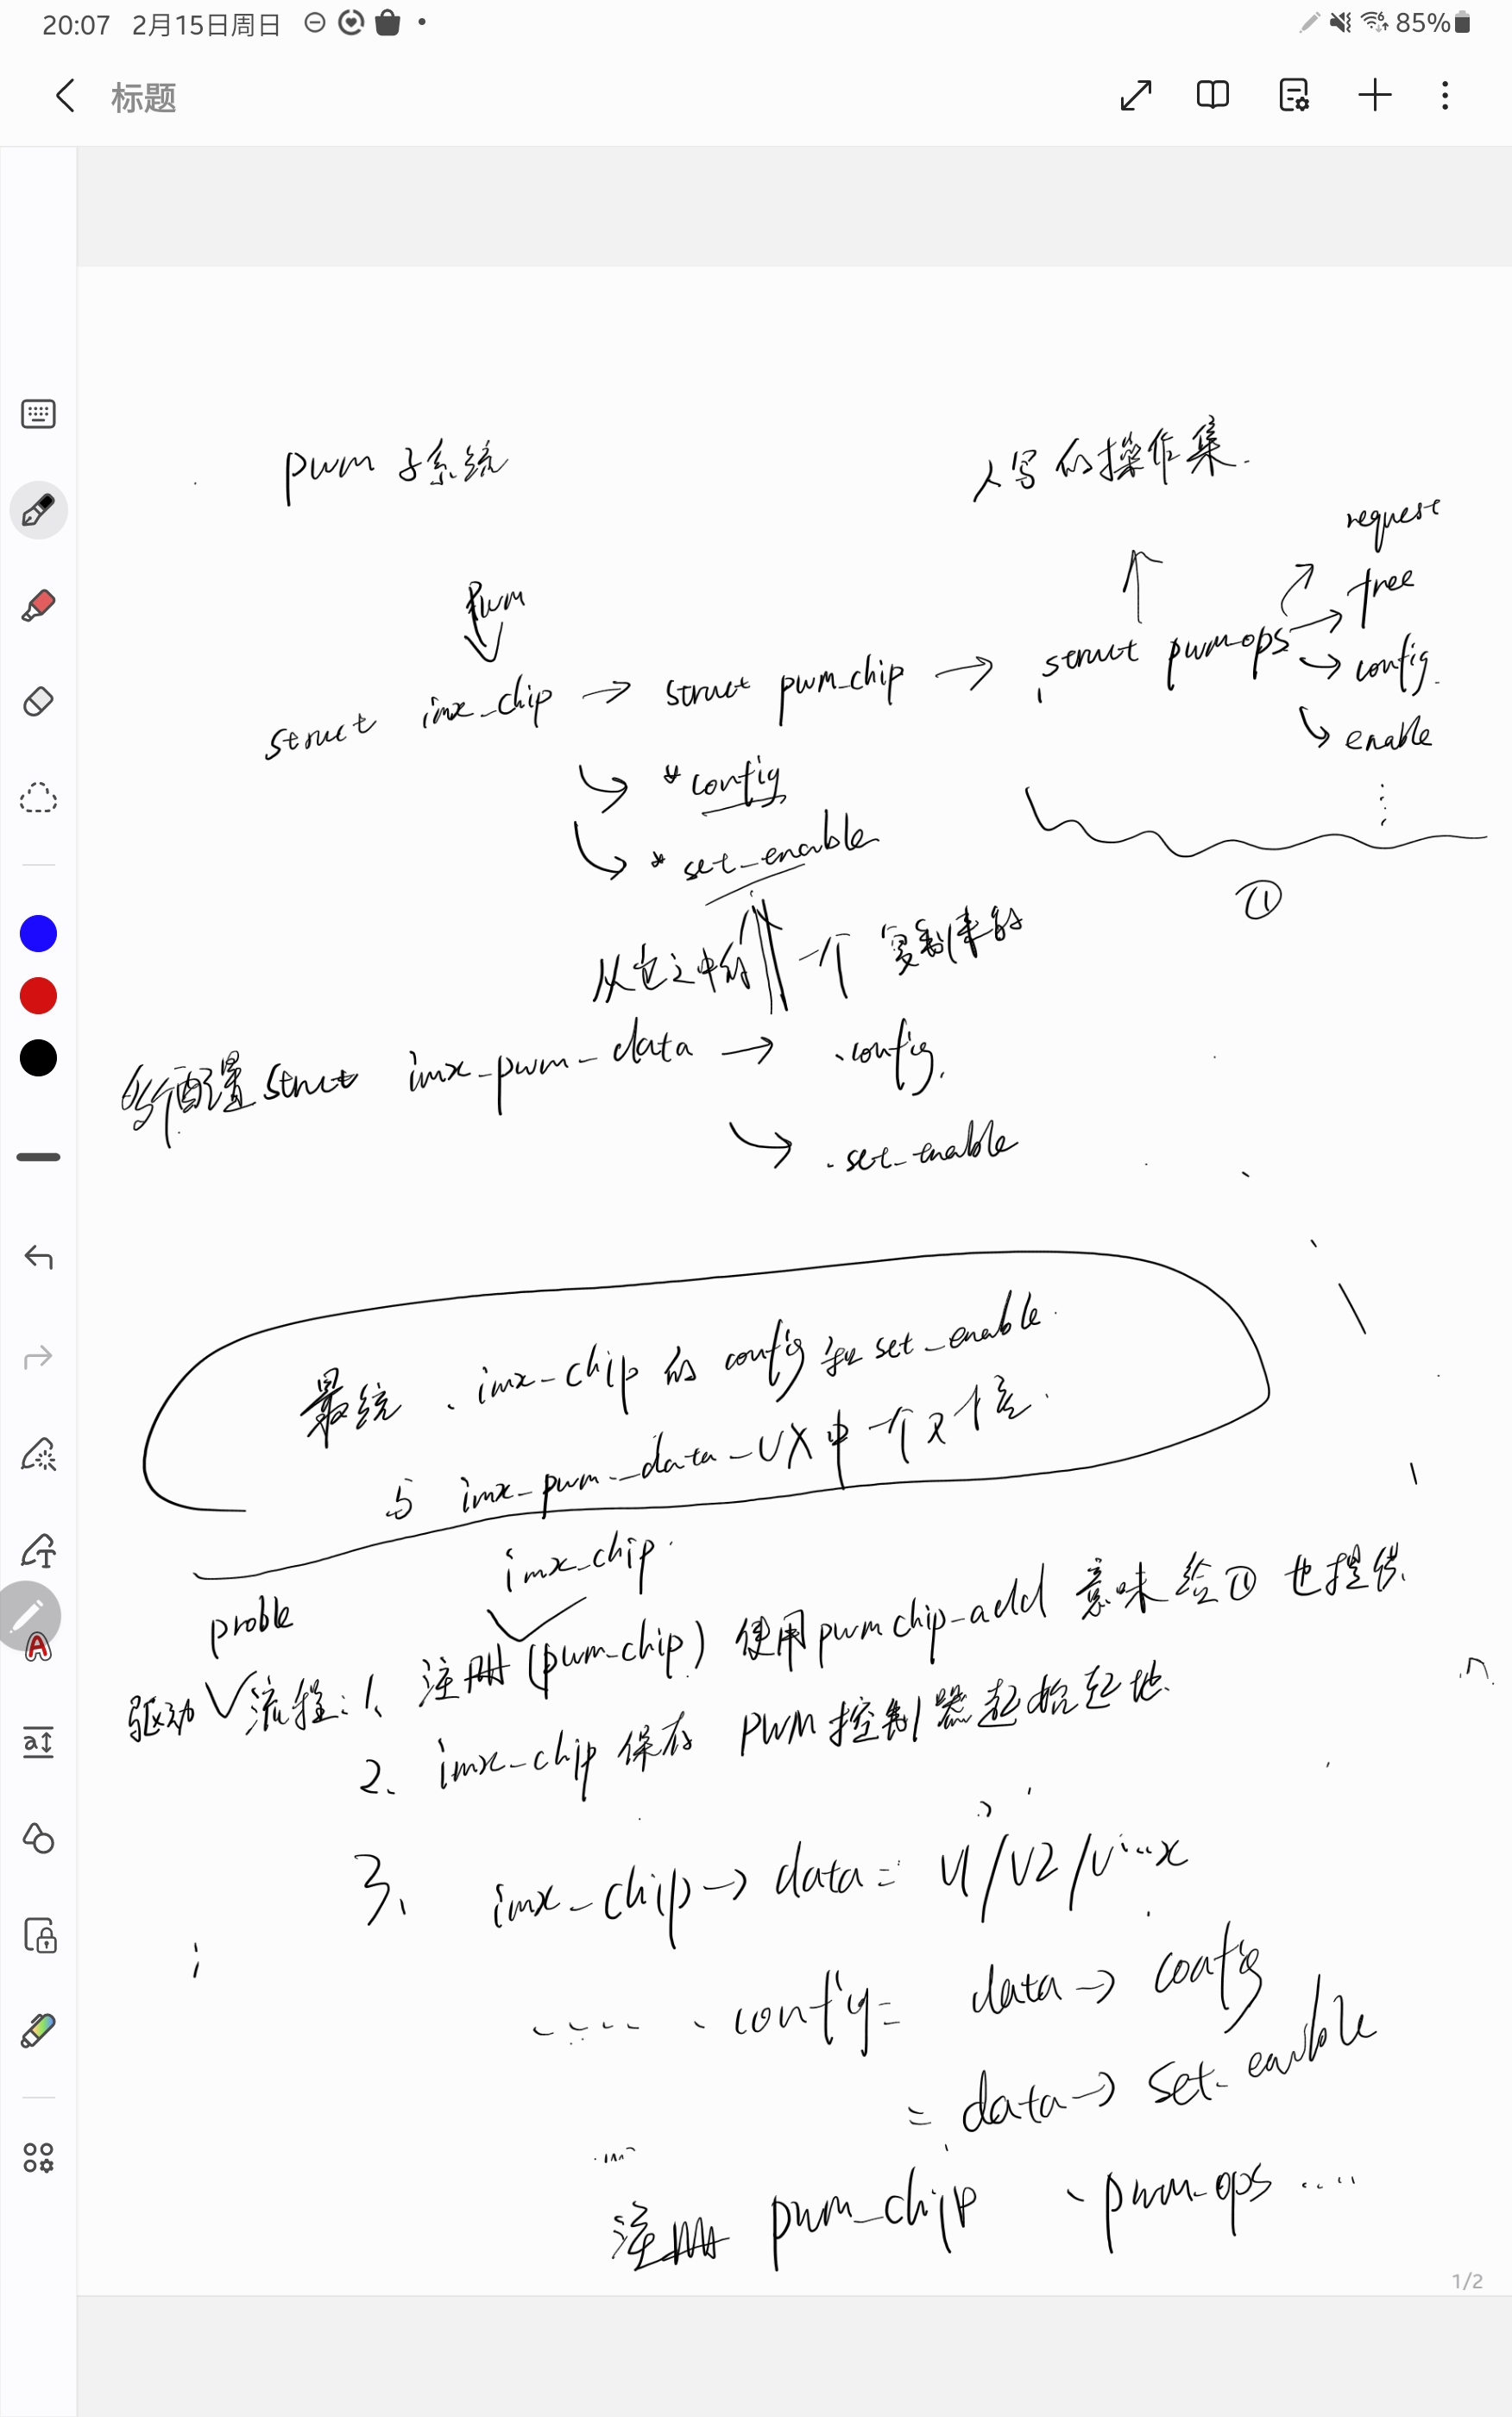 20:07 2月15日周日 85%
标题
pwm 子系统
人写的操作集.
request
pwm
free
struct imx_chip → struct pwm_chip → struct pwm_ops
config.
enable
*config
*set_enable
①
从它之中的一个复制来的
配置 struct imx_pwm_data → .config.
.set_enable
最终 . imx_chip 的 config 和 set_enable.
与 imx_pwm_data_VX中一个
imx_chip.
proble
驱动流程: 1、注册(pwm_chip) 使用pwmchip_add 意味给①也提供.
2、imx_chip 保存 PWM控制器起始地
3、imx_chip → data = V1/V2/V...x
..... .config = data → config
= data → set_eanble
....
注册 pwm_chip 、pwm_ops ....
1/2